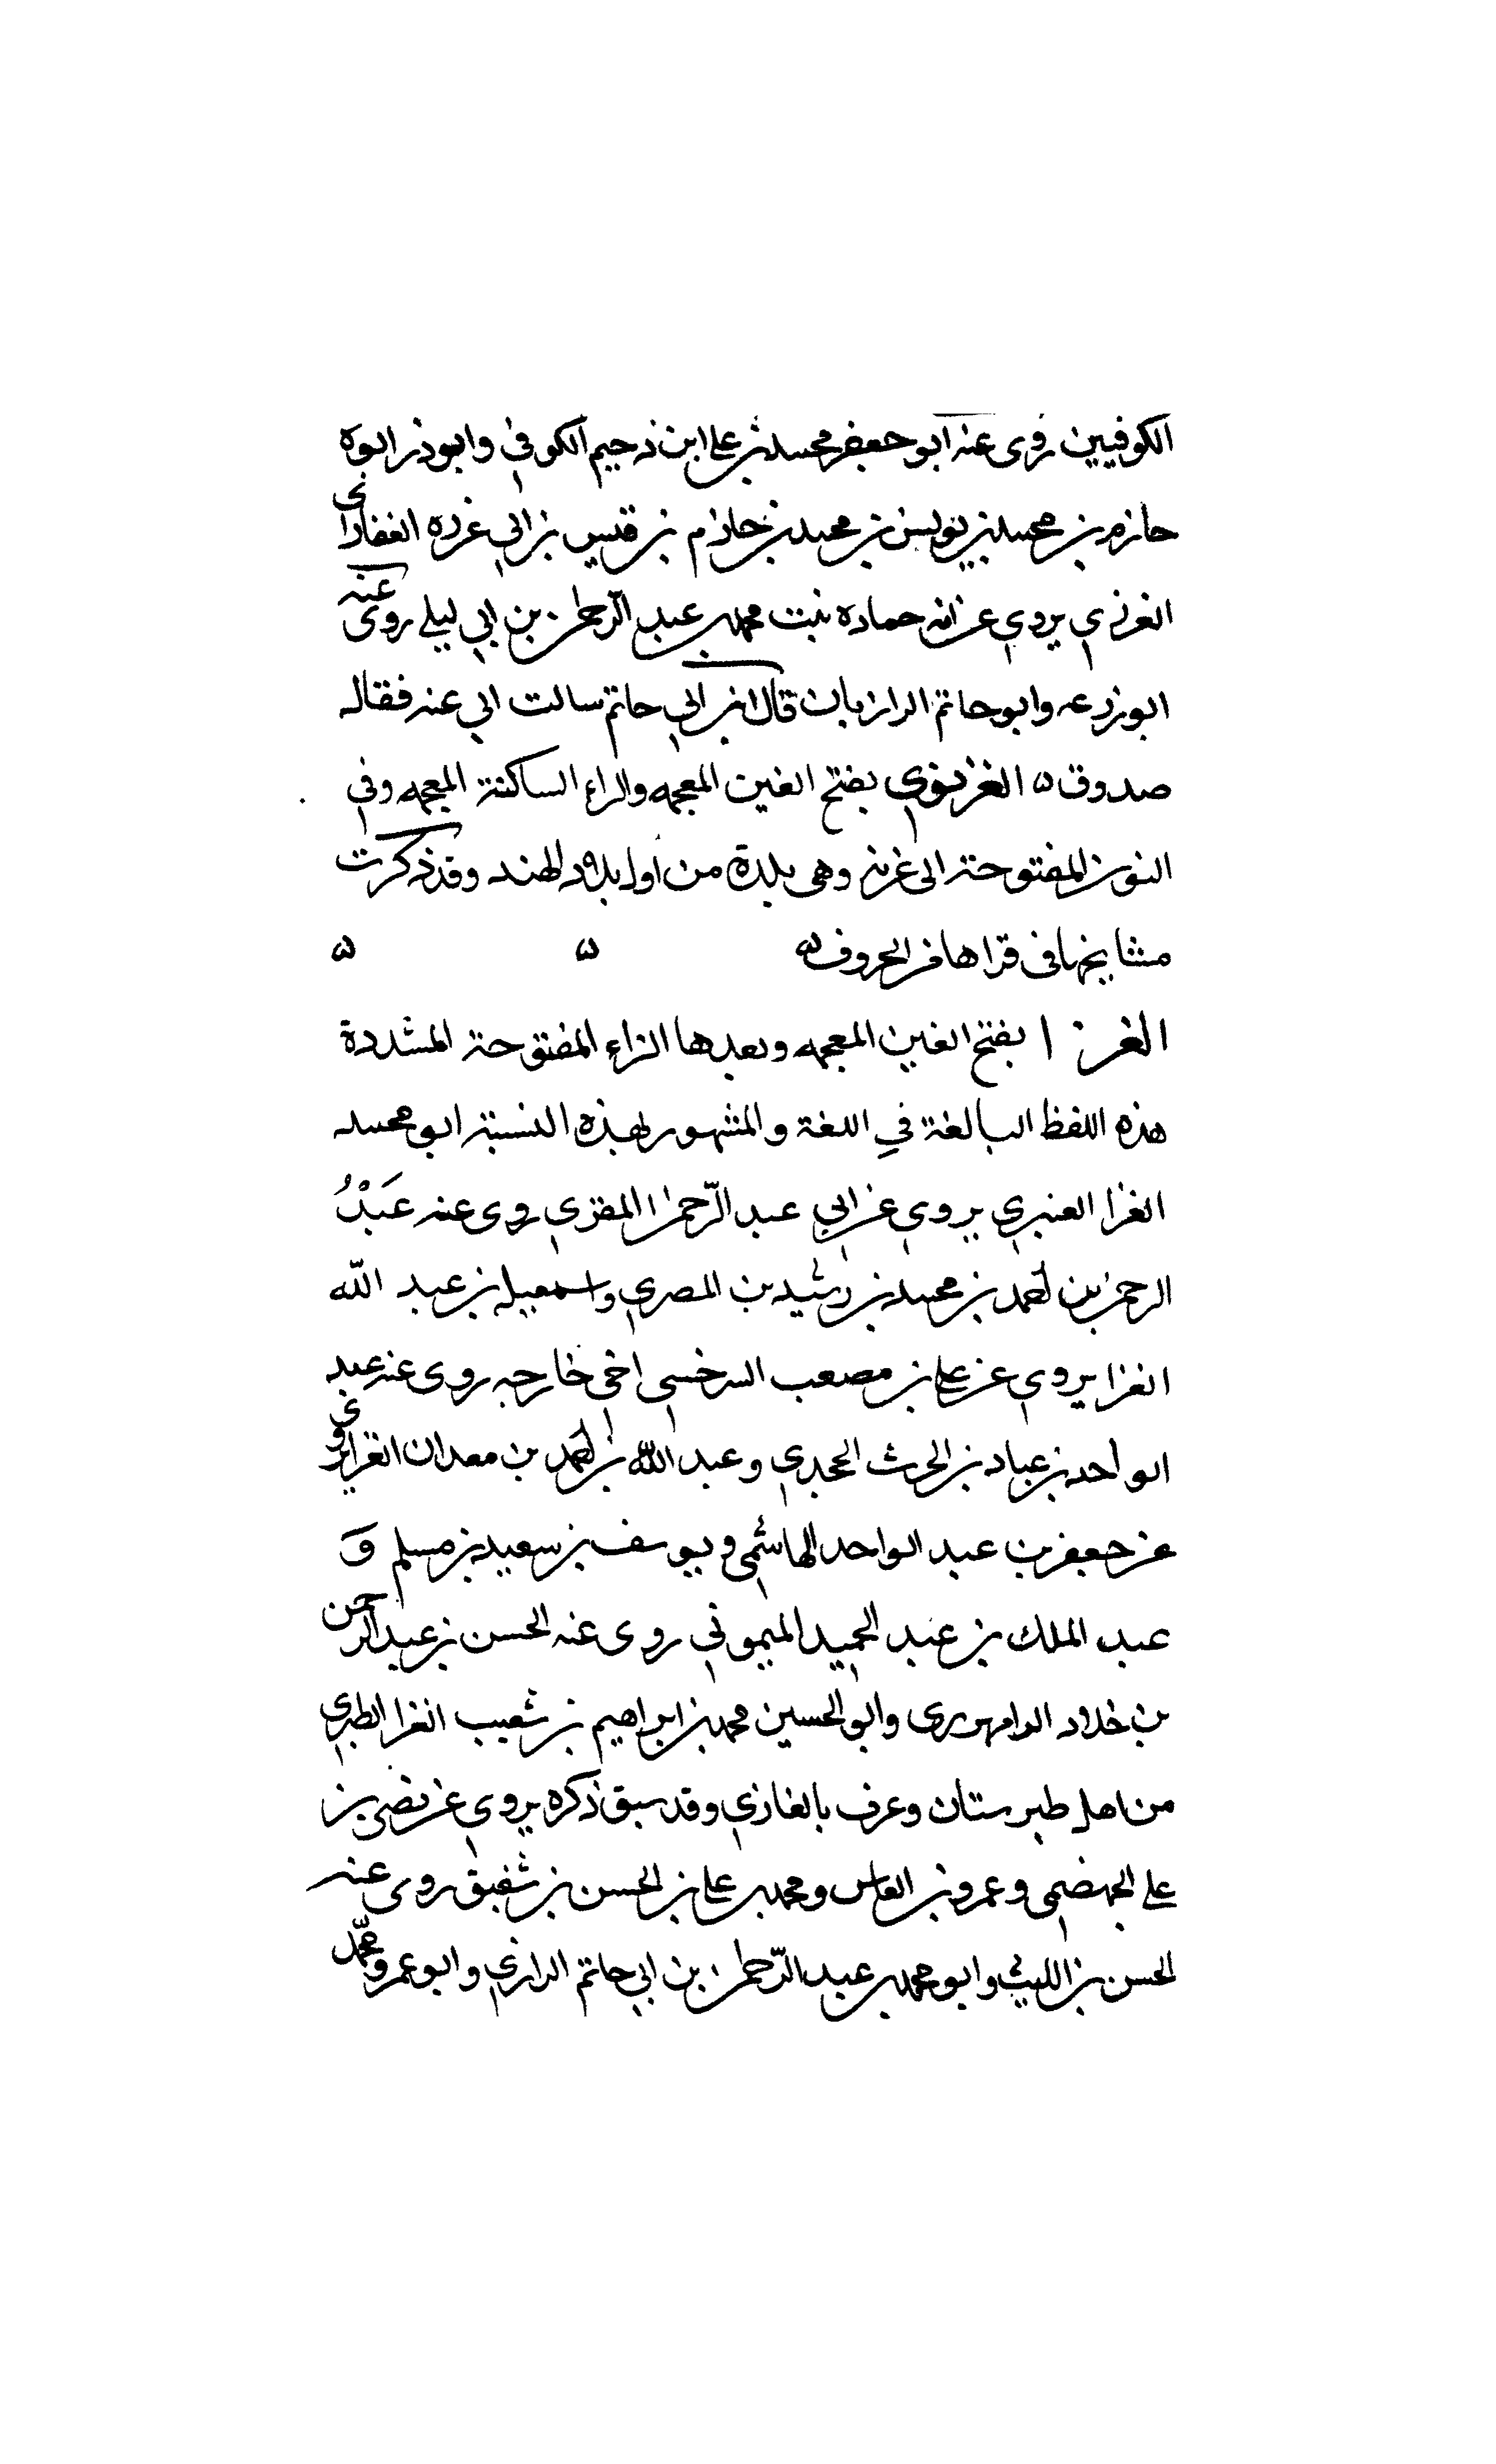 الكوفيين روى عنه ابو جعفر محمد بن على ابن دحيم الكوفي وابو ذر ابوه
حازم بن محمد بن يونس بن محمد بن حازم بن قيس بن ابي غرزه الغفاراى
الغرزي يروي عن امه حماده بنت محمد بن عبد الرحمن بن ابي ليلى روى عنه
ابو زرعه وابو حاتم الرازيان قال ابن ابي حاتم سالت ابي عنه فقال
صدوق ه الغزنوي بفتح الغين المعجمه والزاء الساكنة المعجمه وفي
النون المفتوحة الى غزنه وهى بلدة من اول بلاد الهند وقد ذكرت
مشايخها في الحروف ه ه ه
الغزا بفتح الغين المعجمه وبعدها الزاء المفتوحة المشددة
هذه اللفظ البالغة في اللغة والمشهور بهذه النسبة ابو محمد
الغزا العنبري يروي عن ابي عبد الرحمن المقري روى عنه عَبْدُ
الرحمن بن احمد بن محمد بن رشيدين المصري واسمعيل بن عبد الله
الغزا يروي عن على بن مصعب السرخسي اخي خارجه روى عنه عبد
الواحد بن عباد بن الحرث الجحدي وعبد الله بن احمد بن معدان الغزا يروى
عن جعفر بن عبد الواحد الهاشمي ويوسف بن سعيد بن مسلم وَ
عبد الملك بن عبد الحميد الميموني روى عنه الحسن بن عبد الرحمن
بن خلاد الرامهرمزى وابو الحسين محمد بن ابراهيم بن شعيب الغزا الطبري
من اهل طبرستان وعرف بالغازي وقد سبق ذكره يروي عن نصر بن
علي الجهضمي وعمرو بن العاس ومحمد بن على بن الحسن بن شقيق روى عنه
الحسن بن الليث وابو محمد بن عبد الرحمن بن ابي حاتم الرازي وابو عمرو محمّد